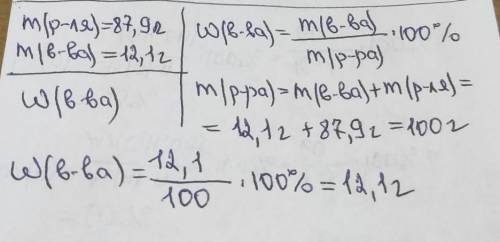 m(р-ля)=87,9г
m(в-ва)=12,1г
W(в-ва)
W(в-ва)=m(в-ва)/m(р-ра)·100%
m(р-ра)=m(в-ва)+m(р-ля)=
=12,1г+87,9г=100г
W(в-ва)=12,1/100·100%=12,1г